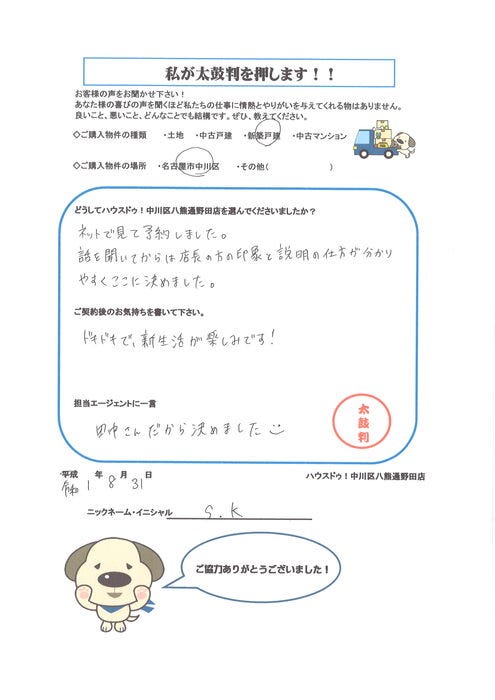 私が太鼓判を押します！！
お客様の声をお聞かせ下さい！
あなた様の喜びの声を聞くほど私たちの仕事に情熱とやりがいを与えてくれる物はありません。
良いこと、悪いこと、どんなことでも結構です。ぜひ、教えてください。
◇ご購入物件の種類 ・土地 ・中古戸建 ・新築戸建 ・中古マンション
◇ご購入物件の場所 ・名古屋市中川区 ・その他( )
どうしてハウスドゥ！中川区八熊通野田店を選んでくださいましたか？
ネットで見て予約しました。
話を聞いてからは店長の方の印象と説明の仕方が分かり
やすくここに決めました。
ご契約後のお気持ちを書いて下さい。
ドキドキで、新生活が楽しみです！
担当エージェントに一言
田中さんだから決めました
太鼓判
平成 年 月 日
令和 1 8 31
ハウスドゥ！中川区八熊通野田店
ニックネーム・イニシャル S.K
ご協力ありがとうございました！